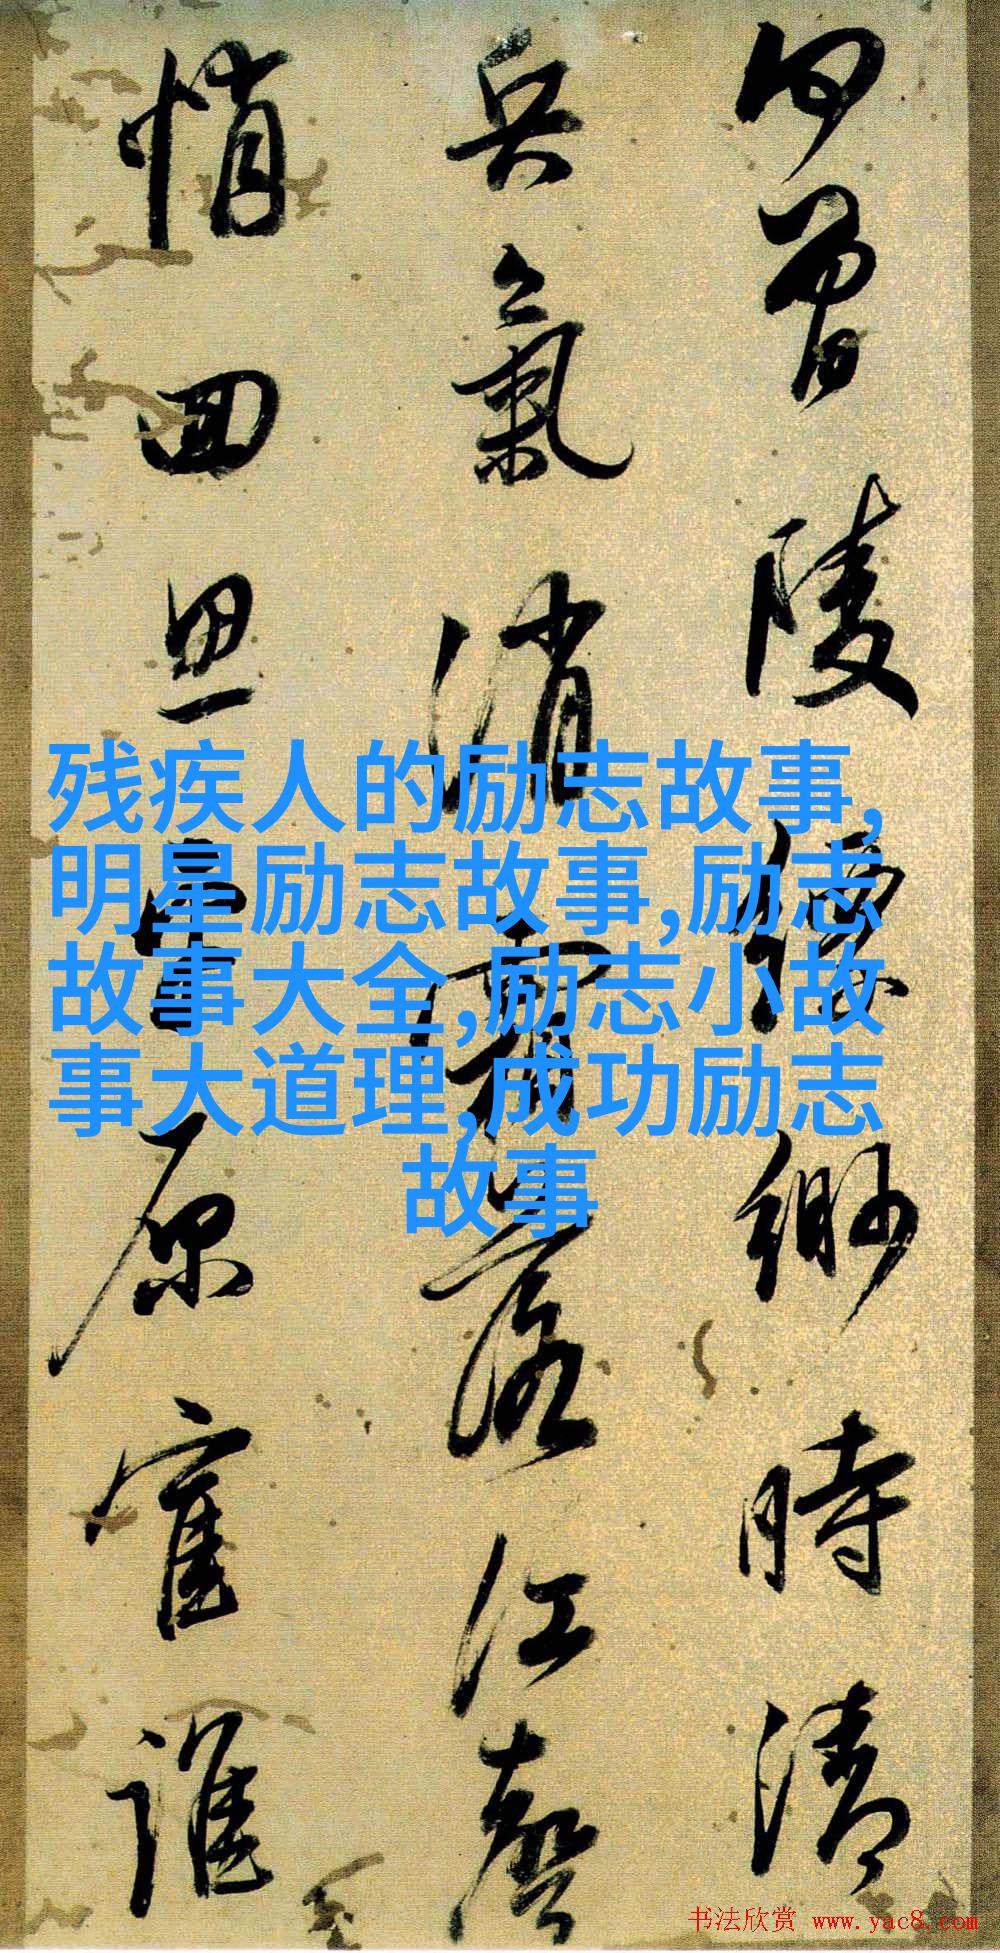 陵縹緲時清
兵氣消霜落江聲
悄回思原誰
残疾人的励志故事,
明星励志故事,励志
故事大全,励志小故
事大道理,成功励志
故事
书法欣赏 www.yac8.com